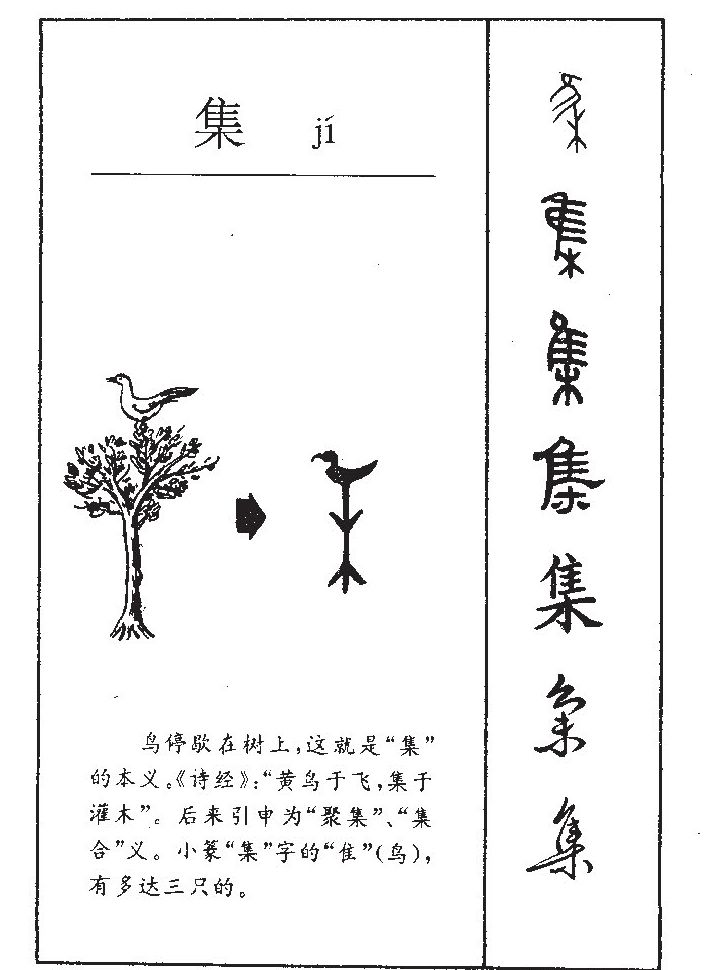 集 jí
鸟停歇在树上，这就是“集”
的本义。《诗经》：“黄鸟于飞，集于
灌木”。后来引申为“聚集”、“集
合”义。小篆“集”字的“隹”（鸟），
有多达三只的。
集
集
集
集
集
集
集